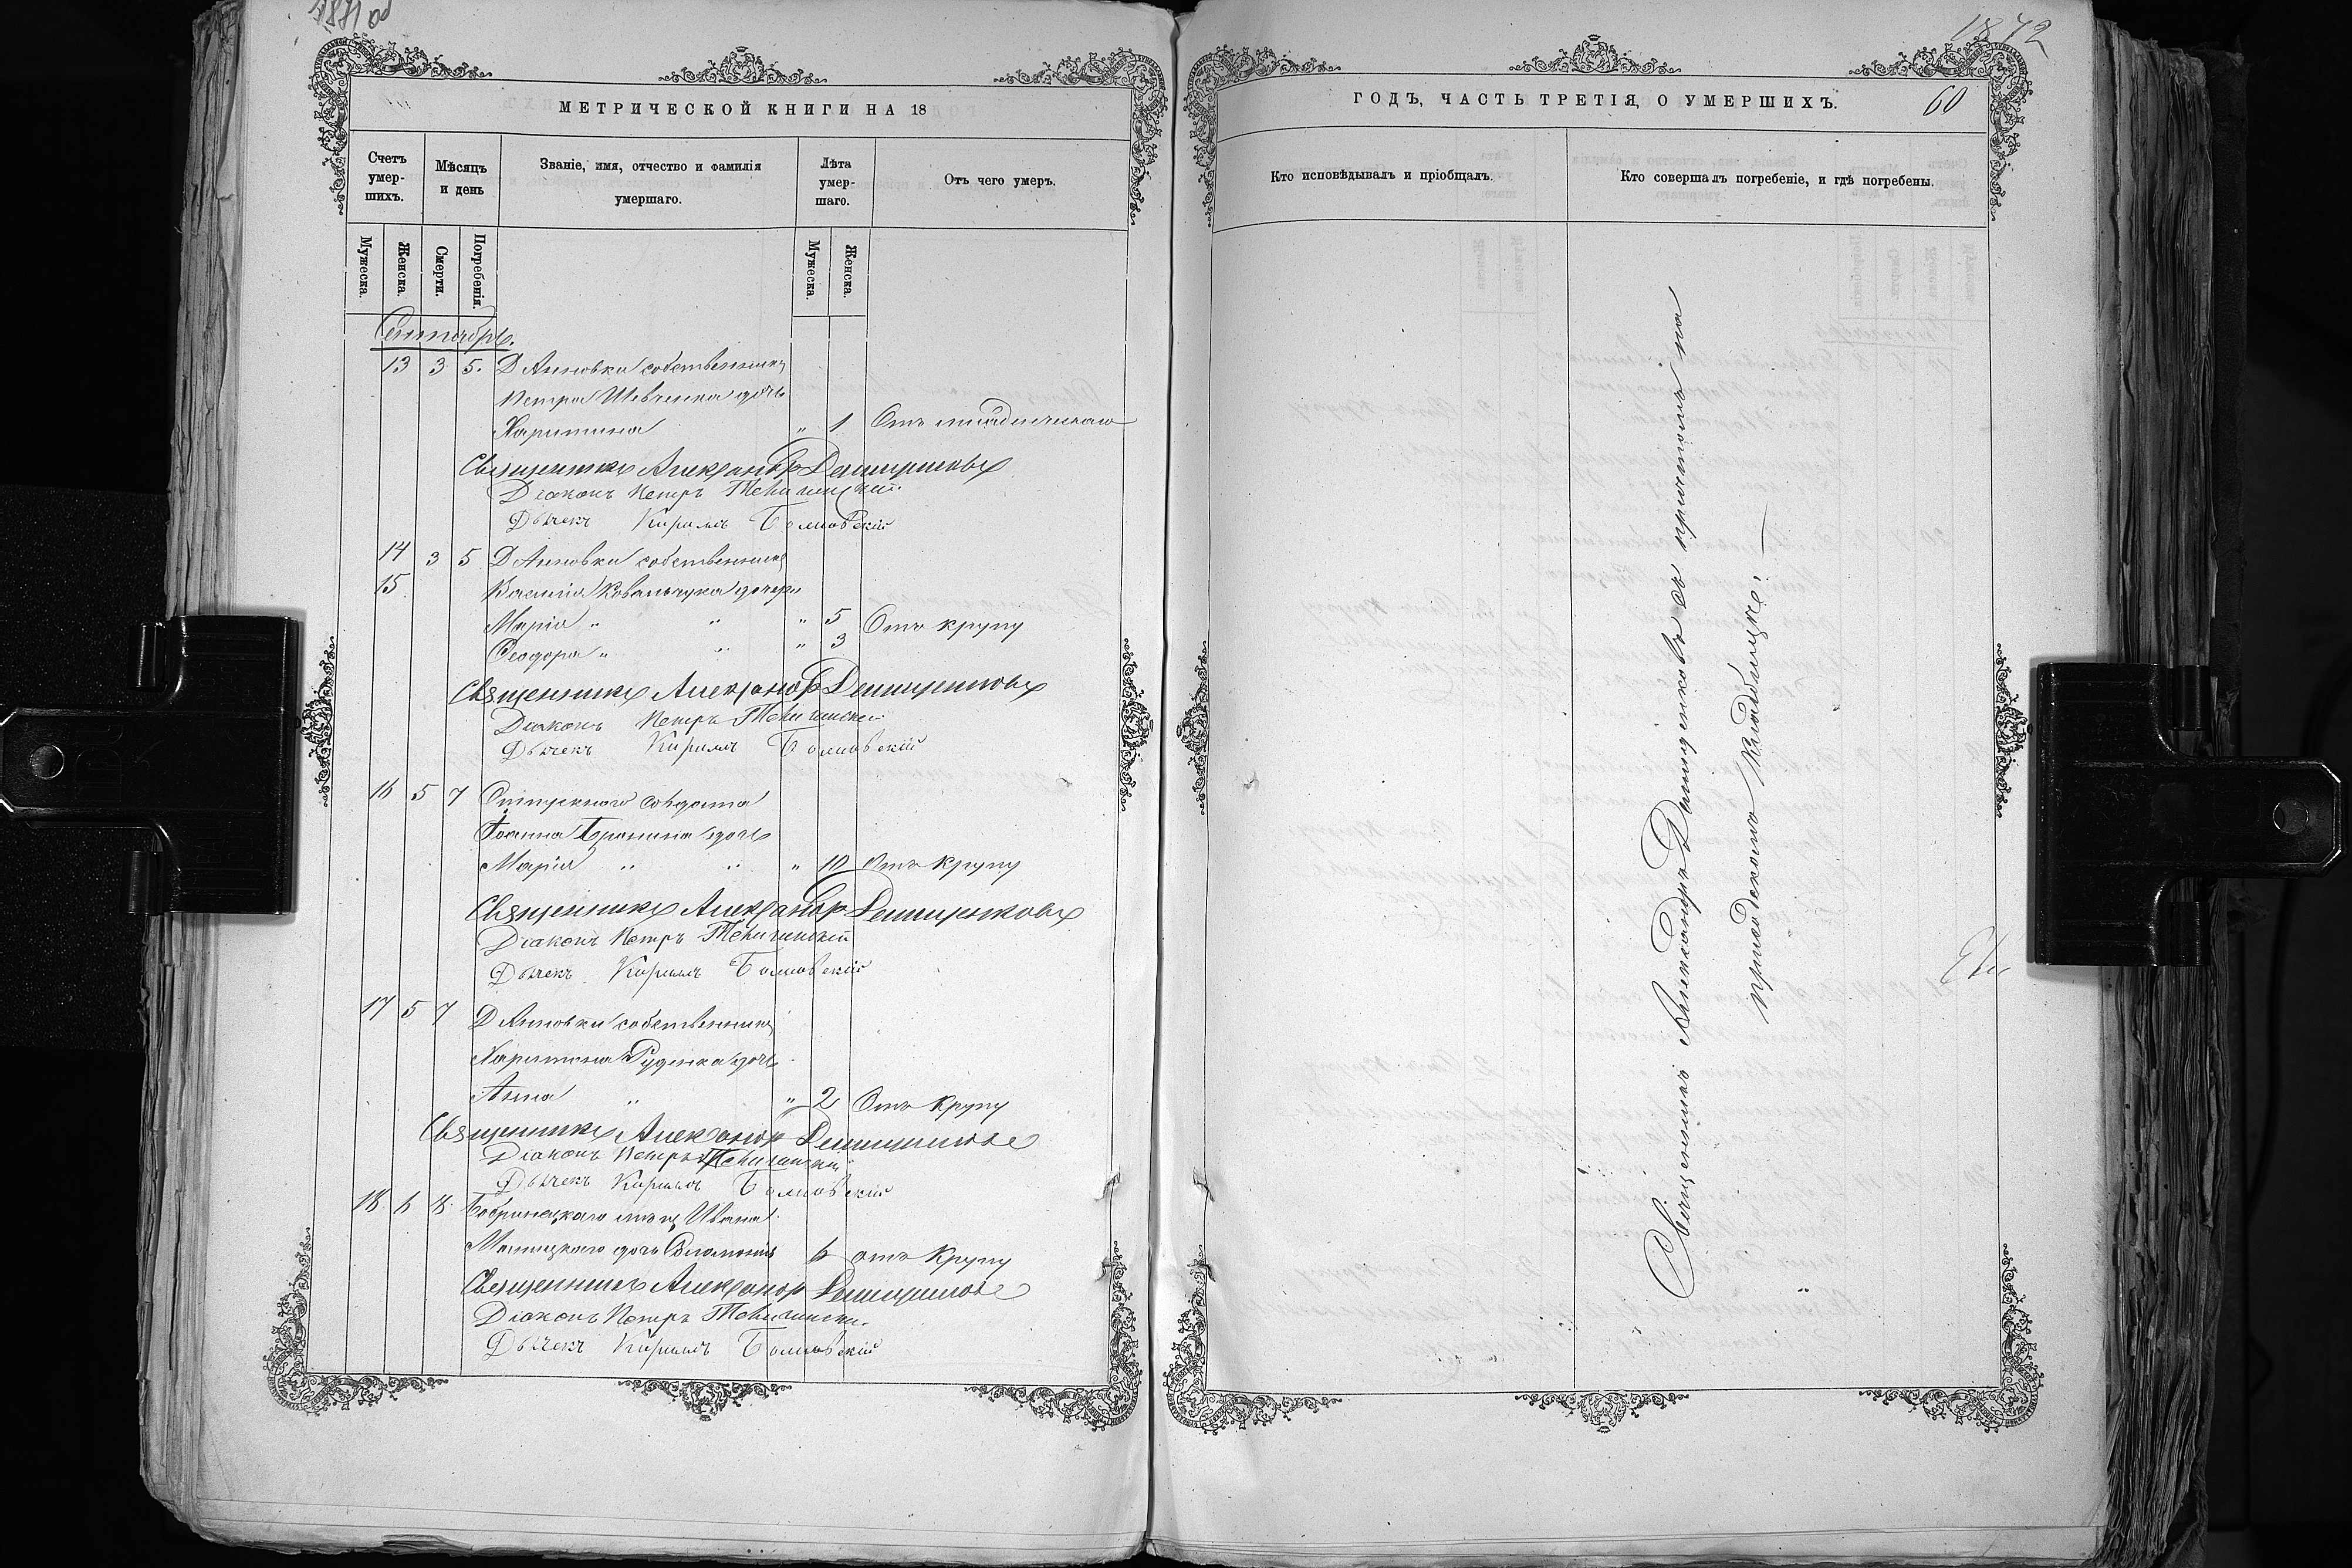 МЕТРИЧЕСКОЙ КНИГИ НА 18
Счетъ умер-шихъ.
Мѣсяцъ и день
Званіе, имя, отчество и фамилія умершаго.
Лѣта умер-шаго.
Отъ чего умеръ.
Мужеска.
Женска.
Смерти.
Погребенія.
Мужеска.
Женска.
Сентябрь.
13 3 5. Д Анновки собственника
Петра Шевченка дочь
Харитина " 1 Отъ
Священникъ Александръ Демищенковъ
Діаконъ Петръ
Дьячекъ Кириллъ
14 3 5 Д Анновки собственника
15 Василія Ковальчука дочери
Марія " " " 5 Отъ крупу
Феодора " " " 3
Священникъ Александръ Демищенковъ
Діаконъ Петръ
Дьячекъ Кириллъ
16 5 7 Отпускного солдата
Іоанна дочь
Марія " " " 10 Отъ крупу
Священникъ Александръ Демищенковъ
Діаконъ Петръ
Дьячекъ Кириллъ
17 5 7 Д Анновки собственника
Харитона Руденка дочь
Анна " " 2 Отъ крупу
Священникъ Александръ Демищенковъ
Діаконъ Петръ
Дьячекъ Кириллъ
18 6 8 Бобринецкаго мѣщ Ивана
дочь Соломонія 6 отъ крупу
Священникъ Александръ Демищенковъ
Діаконъ Петръ
Дьячекъ Кириллъ
1872
ГОДЪ, ЧАСТЬ ТРЕТІЯ, О УМЕРШИХЪ.
60
Кто исповѣдывалъ и пріобщалъ.
Кто совершалъ погребеніе, и гдѣ погребены.
Священникъ Александръ Демищенковъ съ причтомъ на
приходскомъ кладбищѣ.